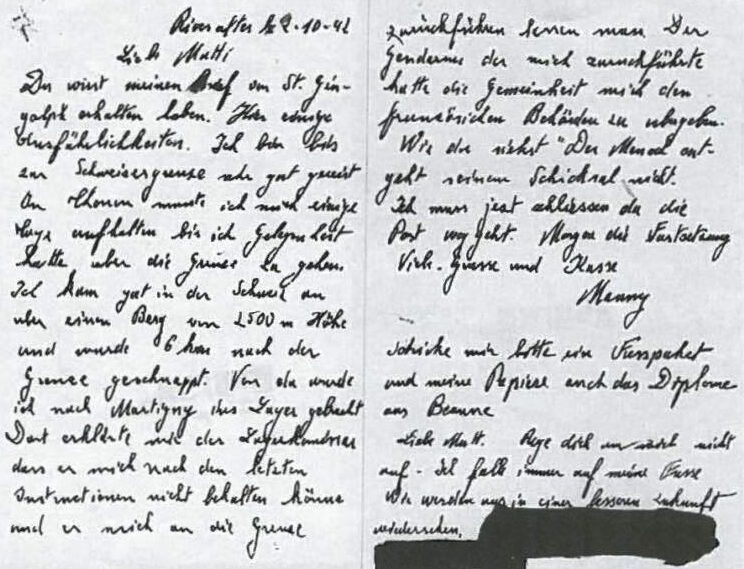 Rivesaltes le 2-10-42
Liebe Mutti
Du wirst meinen Brief von St. Gin-
golph erhalten haben. Hier einige
Ausführlichkeiten. Ich bin bis
zur Schweizergrenze sehr gut gereist
In Thonon musste ich mich einige
Tage aufhalten bis ich Gelegenheit
hatte uber die Grenze zu gehen.
Ich kam gut in der Schweiz an
uber einen Berg von 2500 m Höhe
und wurde 6 km nach der
Grenze geschnappt. Von da wurde
ich nach Martigny ins Lager gebracht
Dort erklärte mir der Lagerkommissar
dass er mich nach den letzten
Instructionen nicht behalten könne
und er mich an die Grenze
zurückführen lassen muss Der
Gendarme der mich zurückführte
hatte die Gemeinheit mich den
französichen Behörden zu ubergeben.
Wie du siehst "Der Mensch ent-
geht seinem Schicksal nicht.
Ich muss jezt schliessen da die
Post weggeht. Morgen die Fortsetzung
Viele Grusse und Kusse
Manny
Schicke mir bitte ein Esspaket
und meine Papiere auch das Diplome
aus Beaune
Liebe Mutt. Rege dich um mich nicht
auf - Ich falle immer auf meine Fusse
Wir werden uns in einer besseren Zukunft
wiedersehen,